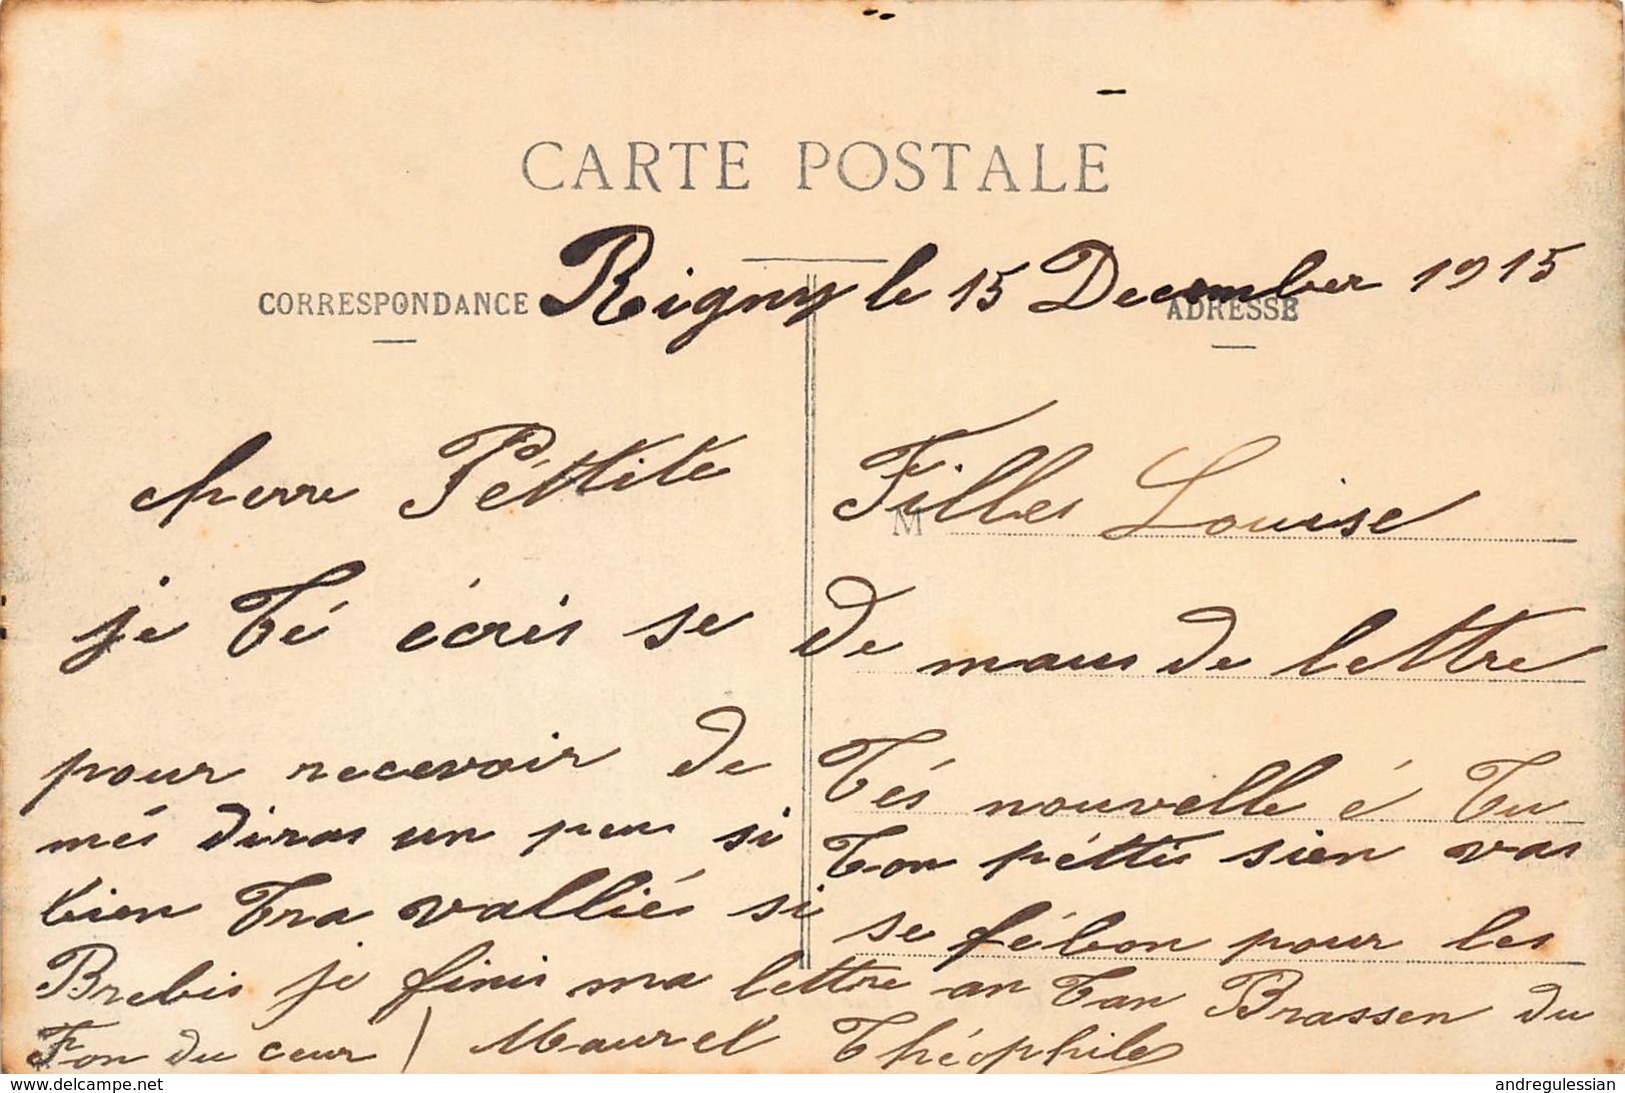 CARTE POSTALE
CORRESPONDANCE
ADRESSE
Rigny le 15 December 1915
cherre Péttite Filles Louise
M
je té écris se de maus de lettre
pour recevoir de tés nouvelle é tu
més diras un peu si ton péttis sien vas
bien tra valliés si se fébon pour les
Brebis je finis ma lettre an tan Brassen du
Fon du ceur / Maurel Théophile
www.delcampe.net
andregulessian